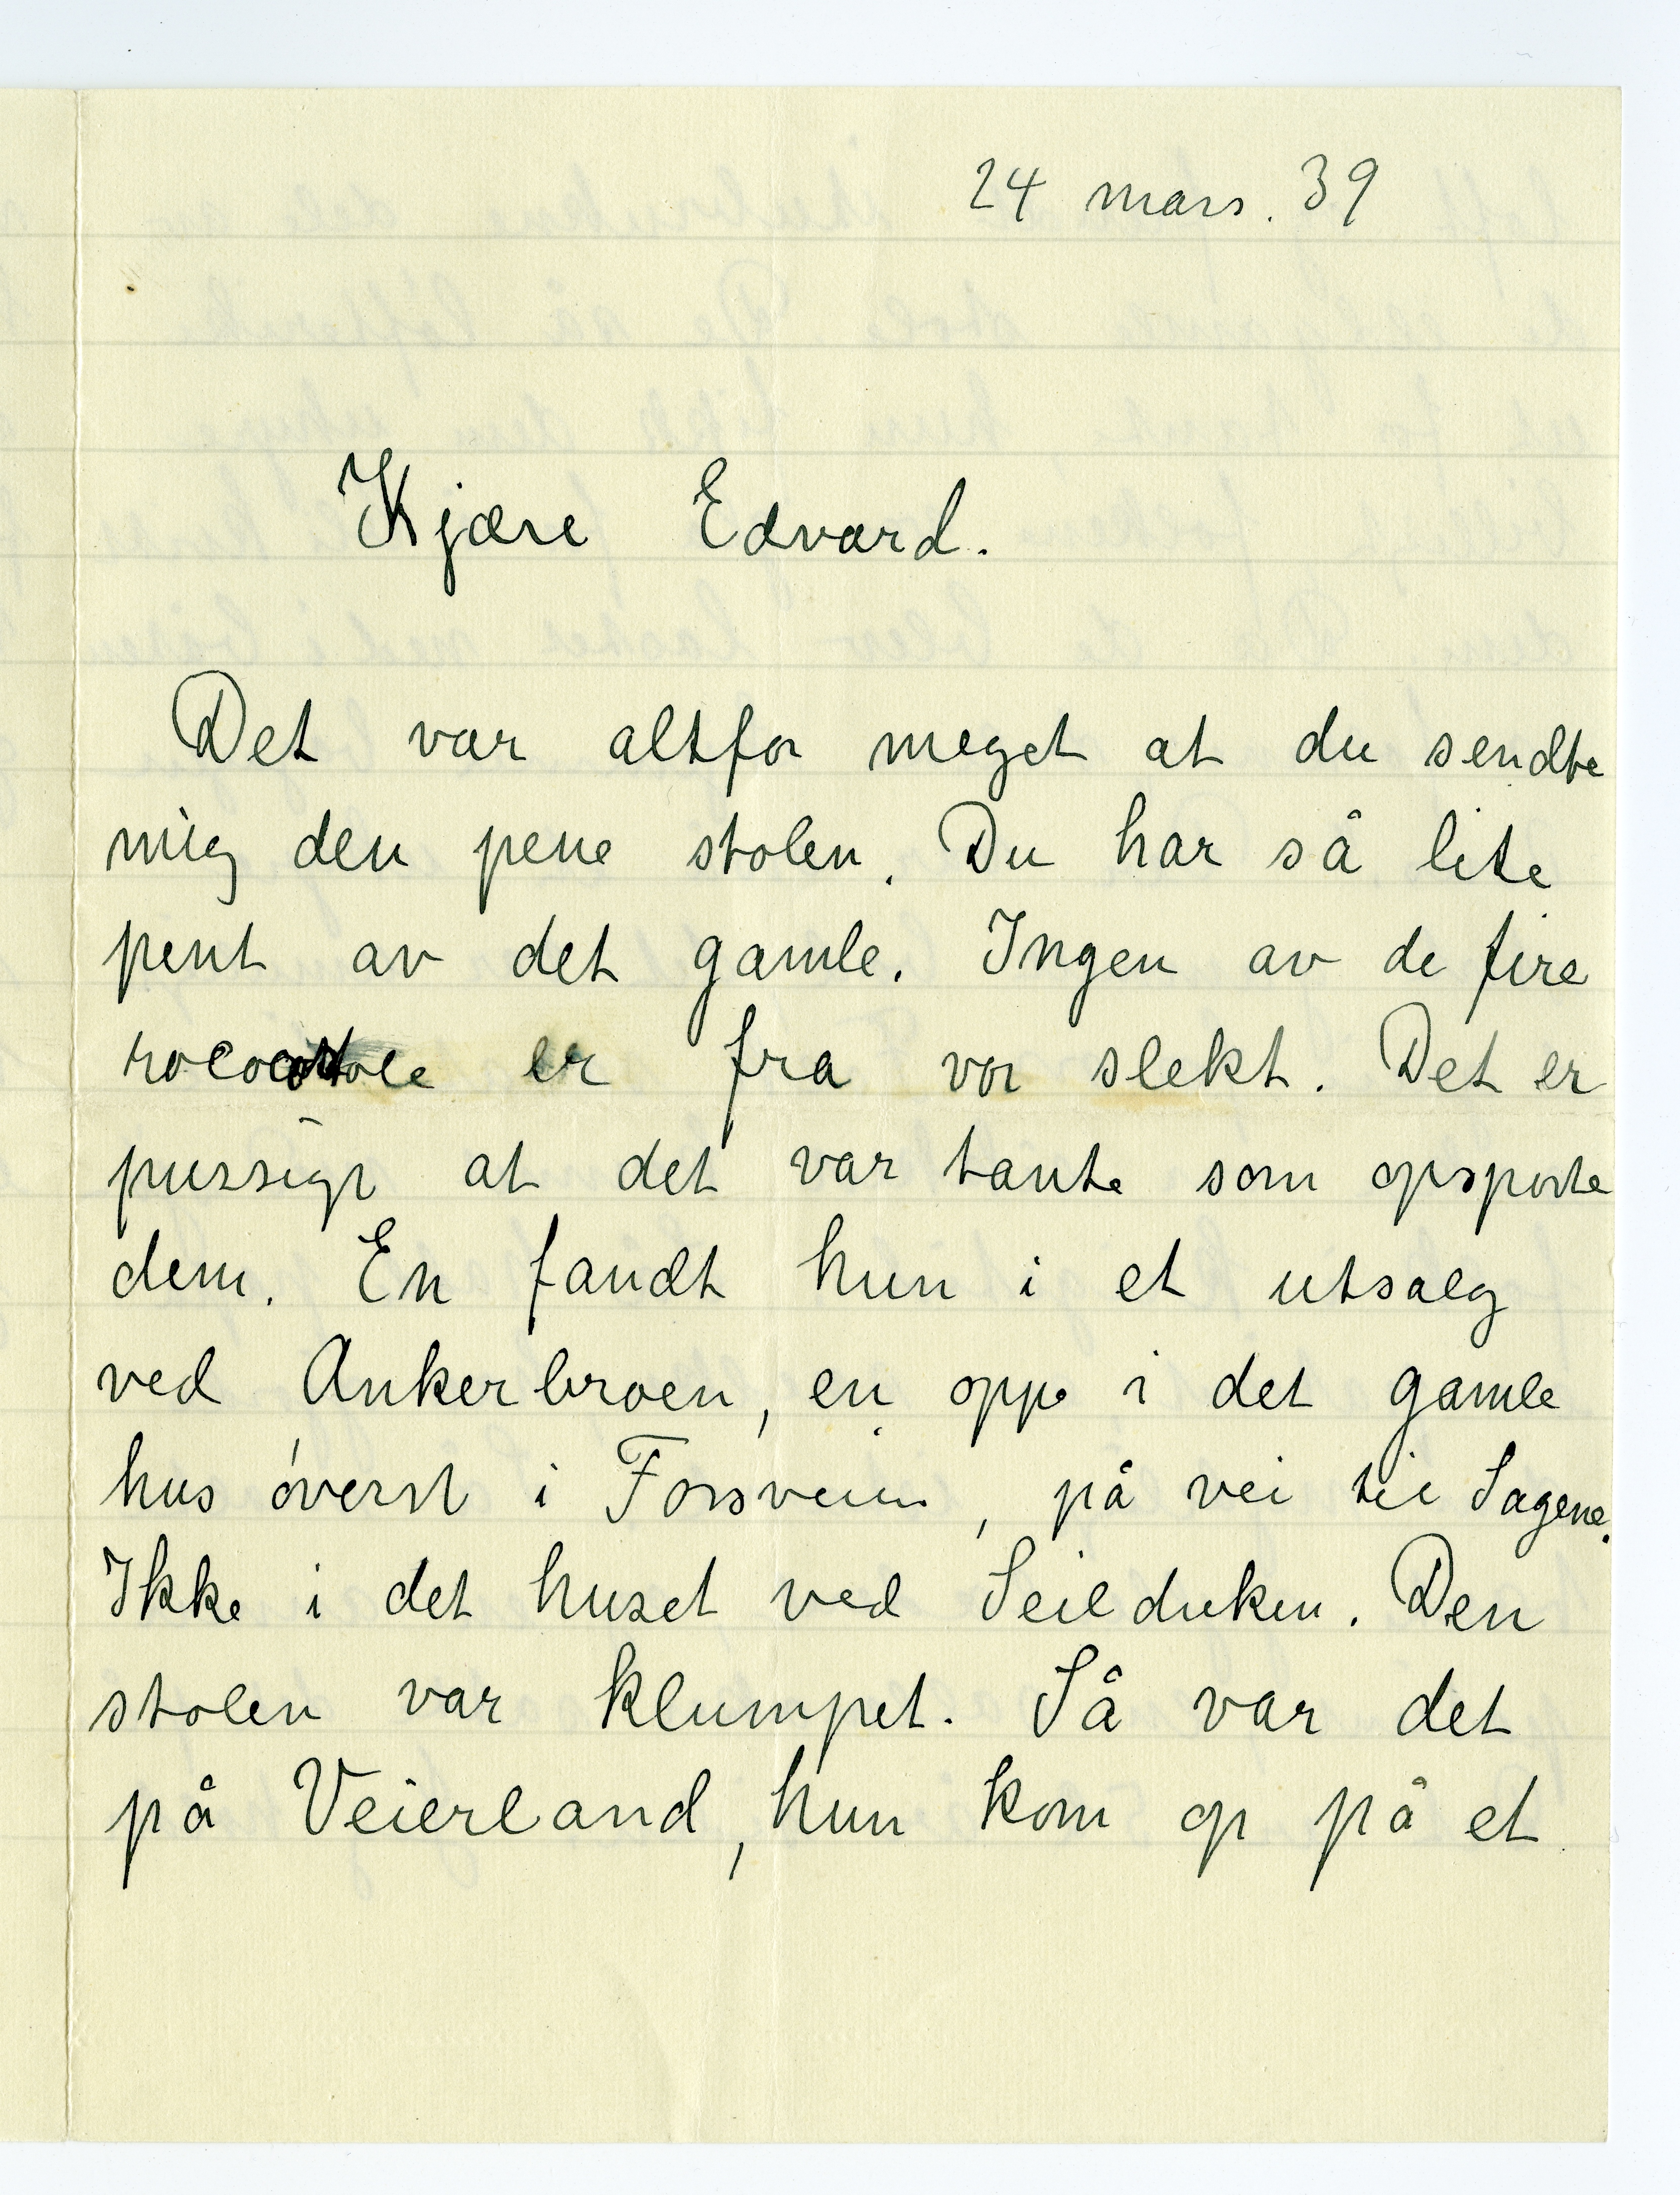 24 mars. 39
Kjære Edvard.
Det var altfor meget at du sendte
mig den pene stolen. Du har så lite
pent av det gamle. Ingen av de fire
rococostole er fra vor slekt. Det er
pussigt at det var tante som opsporte
dem. En fandt hun i et utsalg
ved Ankerbroen, en oppe i det gamle
hus øverst i Forsveien, på vei til Sagene.
Ikke i det huset ved Seilduken. Den
stolen var klumpet. Så var det
på Veierland, hun kom op på et